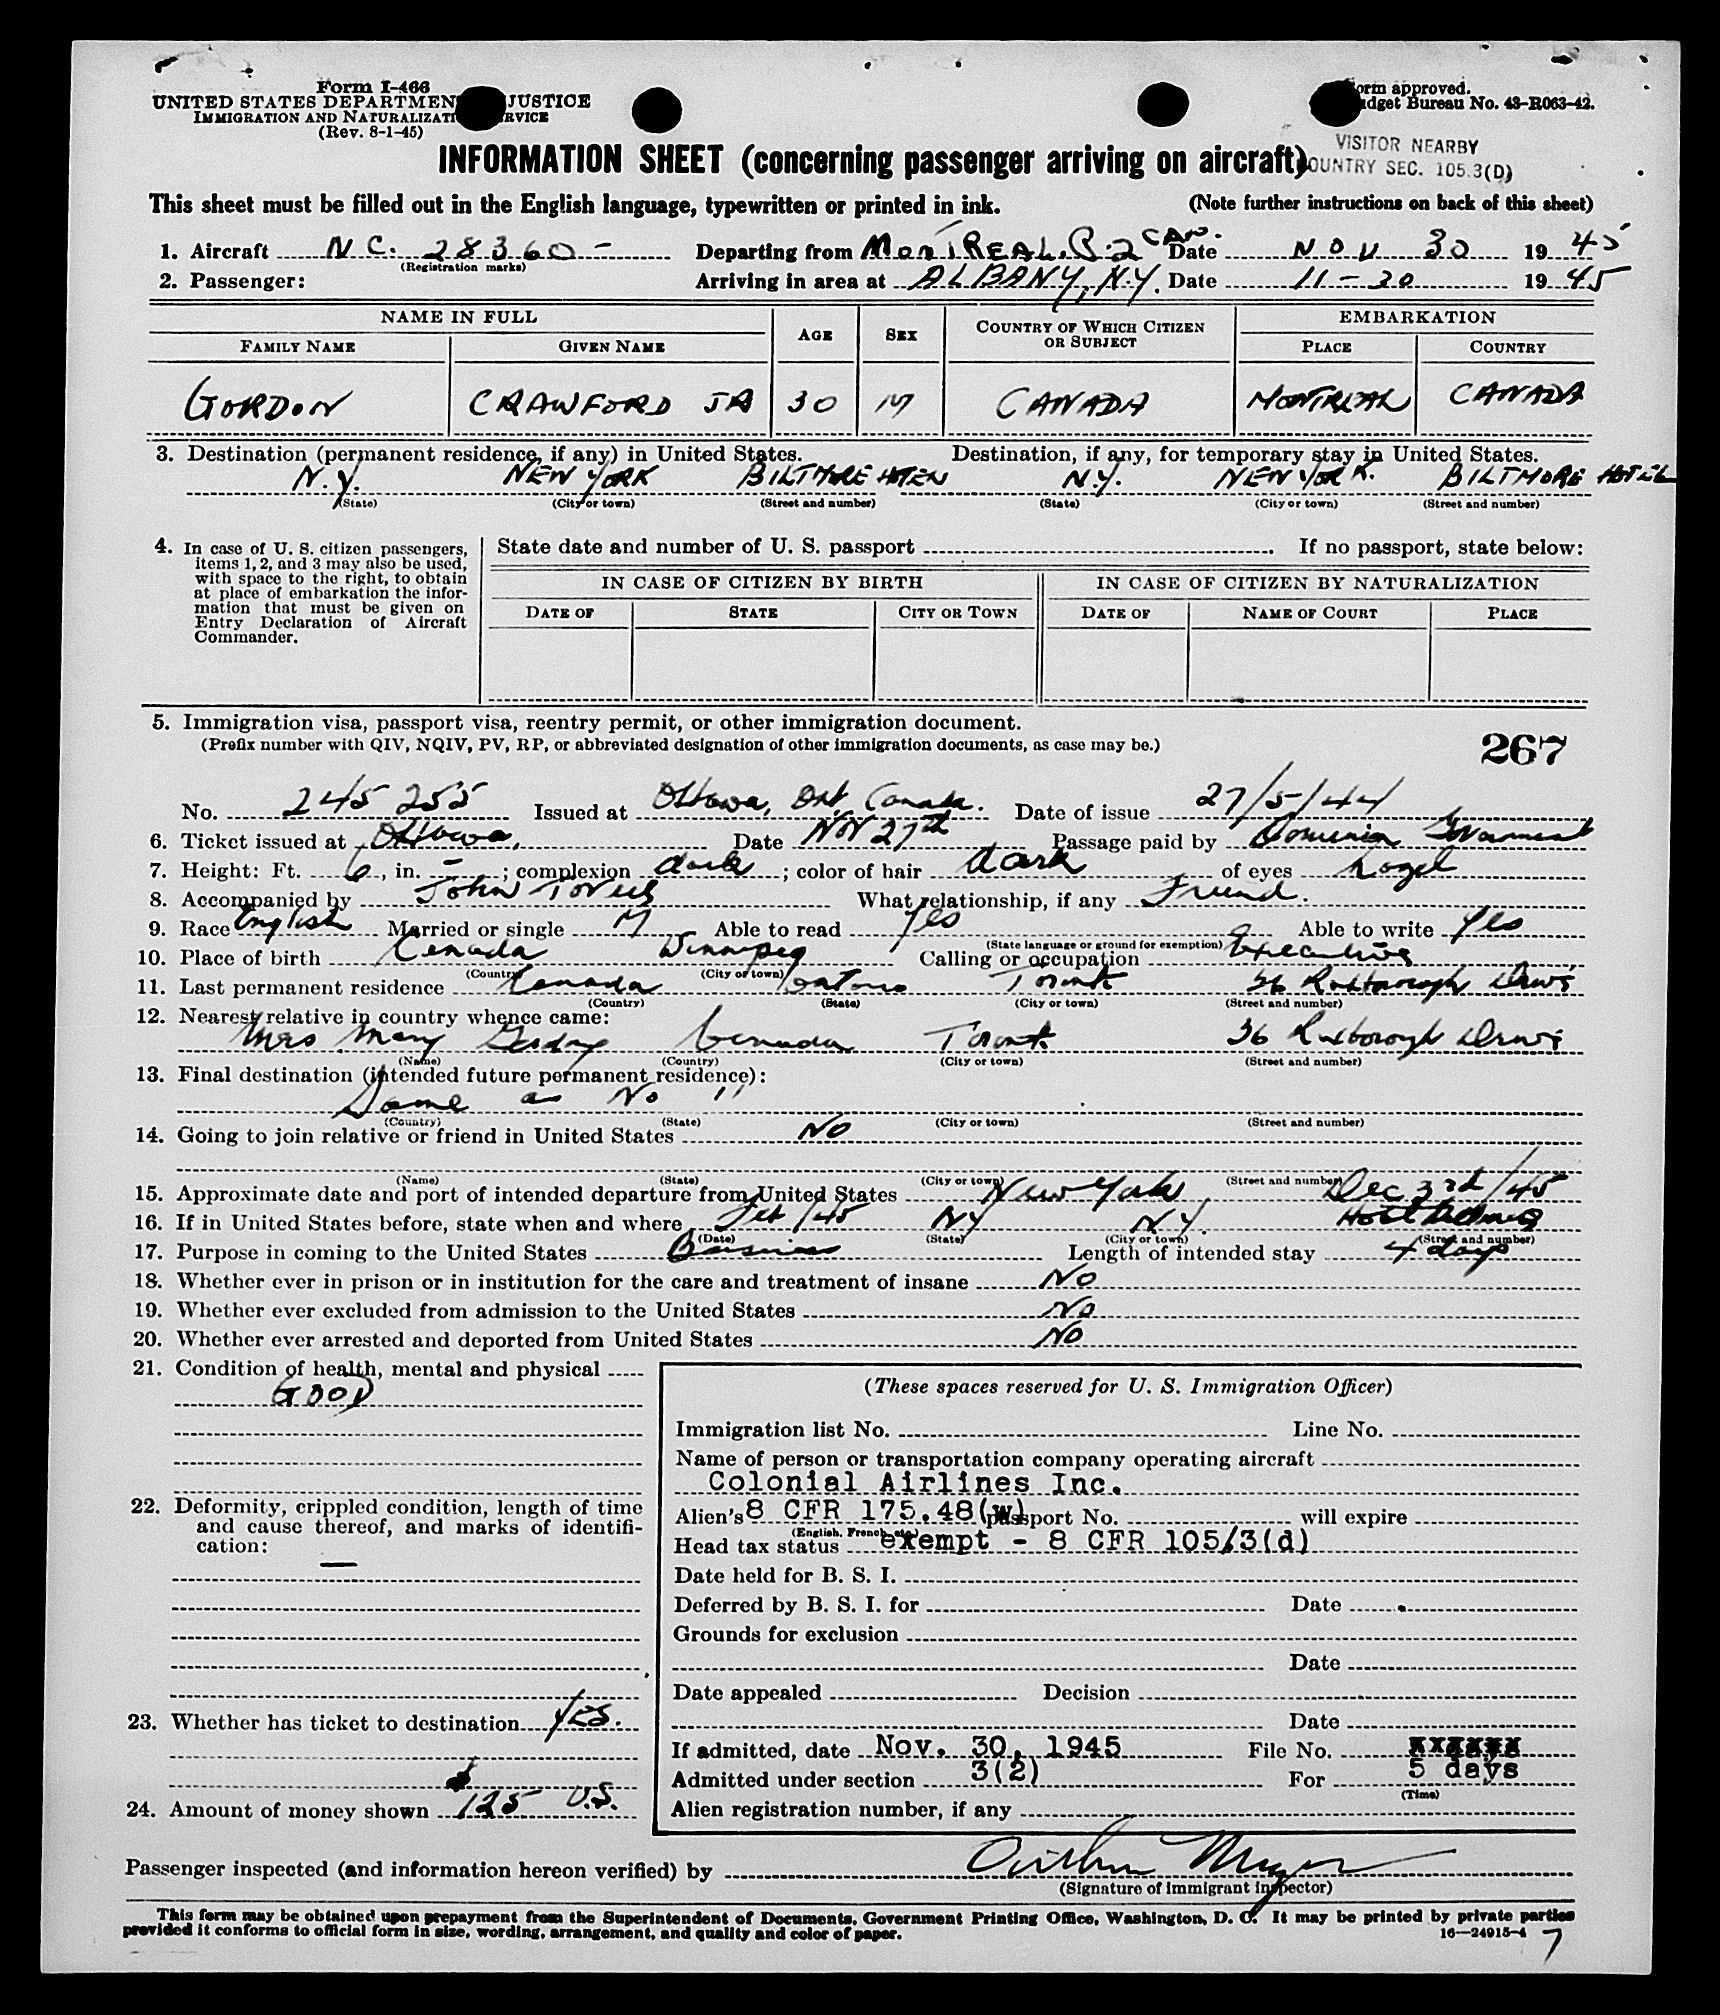 Form I-466
UNITED STATES DEPARTMENT JUSTICE
IMMIGRATION AND NATURALIZATI RVICE
(Rev. 8-1-45)
orm approved.
dget Bureau No. 43-R063-42.
INFORMATION SHEET (concerning passenger arriving on aircraft)
VISITOR NEARBY
OUNTRY SEC. 105.3(D)
This sheet must be filled out in the English language, typewritten or printed in ink. (Note further instructions on back of this sheet)
1. Aircraft N.C. 28360 - Departing from MONTREAL. P.Q CAN. Date NOV 30 1945
(Registration marks)
2. Passenger: Arriving in area at ALBANY, N.Y. Date 11-30 1945
NAME IN FULL AGE SEX COUNTRY OF WHICH CITIZEN OR SUBJECT EMBARKATION
FAMILY NAME GIVEN NAME PLACE COUNTRY
GORDON CRAWFORD JR 30 M CANADA MONTREAL CANADA
3. Destination (permanent residence, if any) in United States. Destination, if any, for temporary stay in United States.
N.Y. NEW YORK BILTMORE HOTEL N.Y. NEW YORK. BILTMORE HOTEL
(State) (City or town) (Street and number) (State) (City or town) (Street and number)
4. In case of U. S. citizen passengers,
items 1, 2, and 3 may also be used,
with space to the right, to obtain
at place of embarkation the infor-
mation that must be given on
Entry Declaration of Aircraft
Commander.
State date and number of U. S. passport . If no passport, state below:
IN CASE OF CITIZEN BY BIRTH IN CASE OF CITIZEN BY NATURALIZATION
DATE OF STATE CITY OR TOWN DATE OF NAME OF COURT PLACE
5. Immigration visa, passport visa, reentry permit, or other immigration document.
(Prefix number with QIV, NQIV, PV, RP, or abbreviated designation of other immigration documents, as case may be.)
267
No. 245 255 Issued at Ottawa, Ont, Canada. Date of issue 27/5/44
6. Ticket issued at Ottawa, Date Nov 27th Passage paid by Dominion Government
7. Height: Ft. 6, in. -; complexion dark; color of hair dark of eyes hazel
8. Accompanied by John What relationship, if any Friend.
9. Race English Married or single M Able to read Yes Able to write Yes
(State language or ground for exemption)
10. Place of birth Canada Winnipeg Calling or occupation Executive
(Country) (City or town)
11. Last permanent residence Canada Ontario Toronto 36 Roxborough Drive
(Country) (State) (City or town) (Street and number)
12. Nearest relative in country whence came:
Mrs Mary Gordon Canada Toronto 36 Roxborough Drive
(Name) (Country) (City or town) (Street and number)
13. Final destination (intended future permanent residence):
Same as No 11
(Country) (State) (City or town) (Street and number)
14. Going to join relative or friend in United States NO
(Name) (State) (City or town) (Street and number)
15. Approximate date and port of intended departure from United States New York Dec 3rd/45
16. If in United States before, state when and where Feb/45 NY NY. Hotel
(Date) (State) (City or town) (Street and number)
17. Purpose in coming to the United States Business Length of intended stay 4 days
18. Whether ever in prison or in institution for the care and treatment of insane No
19. Whether ever excluded from admission to the United States No
20. Whether ever arrested and deported from United States NO
21. Condition of health, mental and physical
GOOD
22. Deformity, crippled condition, length of time
and cause thereof, and marks of identifi-
cation:
—
23. Whether has ticket to destination YES.
24. Amount of money shown $125 U.S.
(These spaces reserved for U. S. Immigration Officer)
Immigration list No. Line No.
Name of person or transportation company operating aircraft
Colonial Airlines Inc.
Alien's 8 CFR 175.48(w) passport No. will expire
(English, French, etc.)
Head tax status exempt - 8 CFR 105/3(d)
Date held for B. S. I.
Deferred by B. S. I. for Date
Grounds for exclusion
Date
Date appealed Decision
Date
If admitted, date Nov. 30, 1945 File No. xxxxxx
Admitted under section 3(2) For 5 days
(Time)
Alien registration number, if any
Passenger inspected (and information hereon verified) by
(Signature of immigrant inspector)
This form may be obtained upon prepayment from the Superintendent of Documents, Government Printing Office, Washington, D. C. It may be printed by private parties
provided it conforms to official form in size, wording, arrangement, and quality and color of paper.
16—24915-4
7